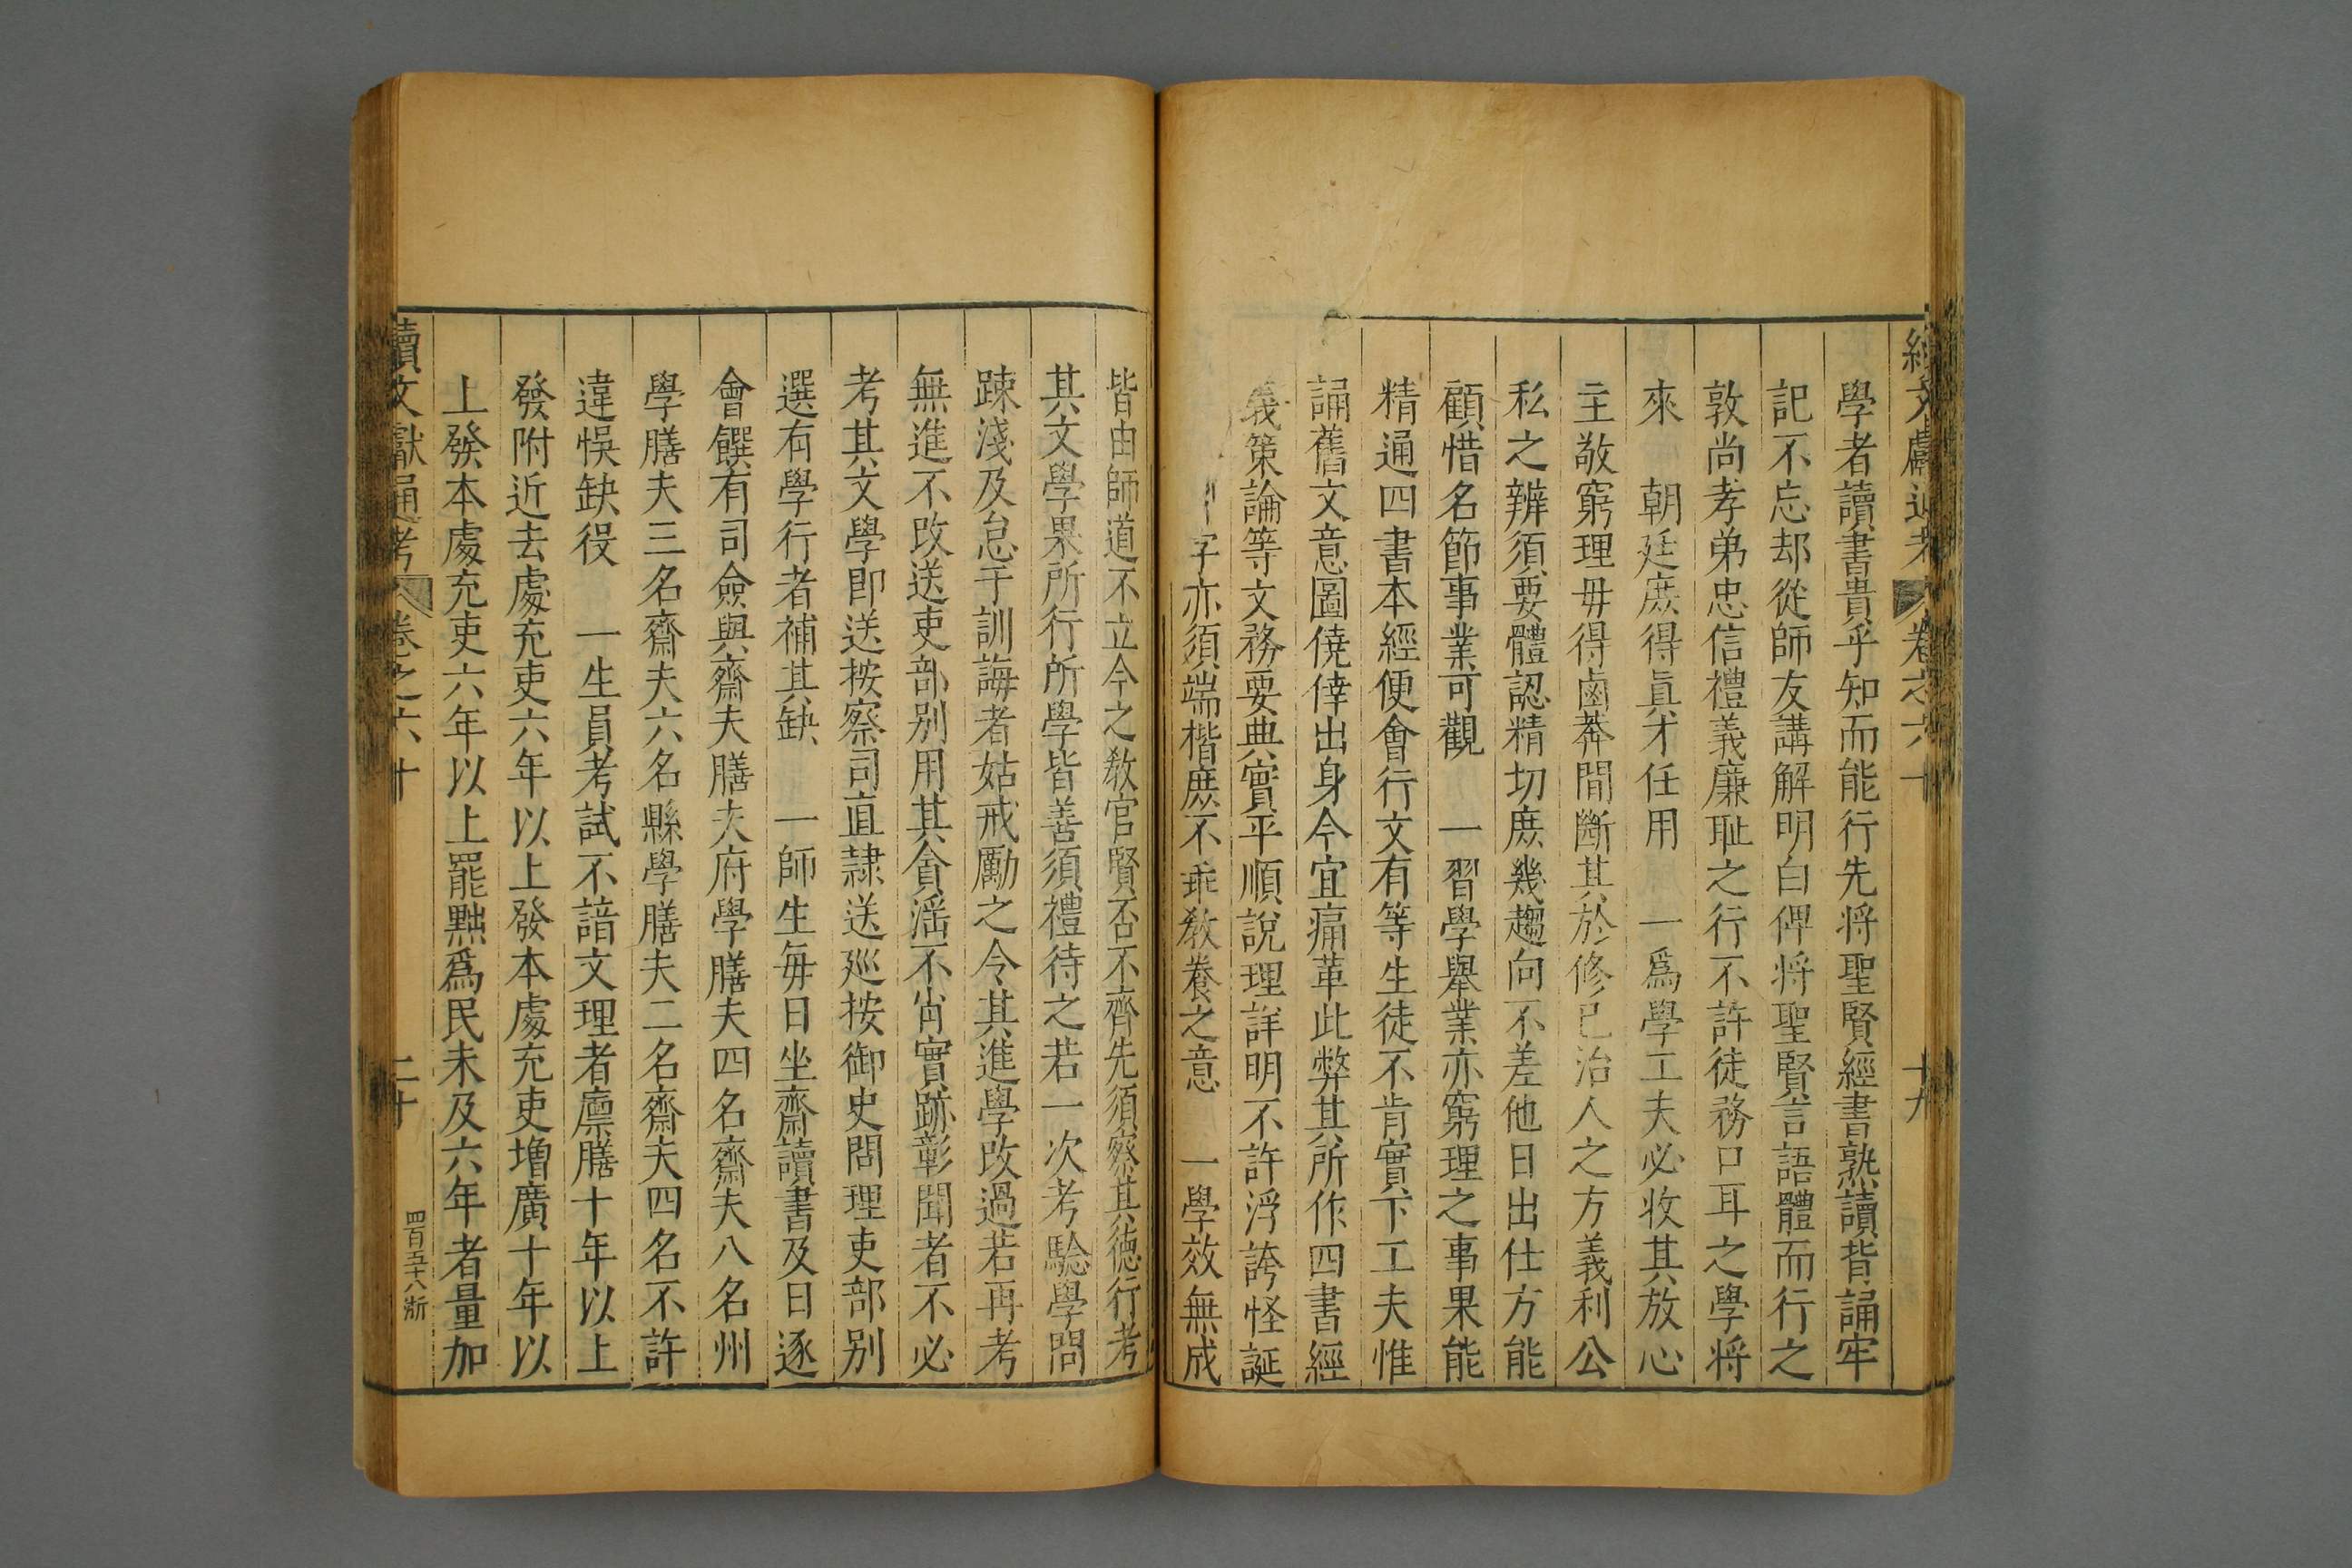 續文獻通考 卷之六十 十九
學者讀書貴乎知而能行先将聖賢經書熟讀背誦牢
記不忘却從師友講解明白俾将聖賢言語體而行之
敦尚孝弟忠信禮義廉耻之行不許徒務口耳之學将
來 朝廷庶得眞才任用 一爲學工夫必收其放心
主敬窮理毋得鹵莽間斷其於修己治人之方義利公
私之辨須要體認精切庶幾趨向不差他日出仕方能
顧惜名節事業可觀 一習學舉業亦窮理之事果能
精通四書本經便會行文有等生徒不肯實下工夫惟
誦舊文意圖僥倖出身今宜痛革此弊其所作四書經
義策論等文務要典實平順說理詳明不許浮誇怪誕
字亦須端楷庶不乖教養之意 一學效無成
皆由師道不立今之教官賢否不齊先須察其德行考
其文學果所行所學皆善須禮待之若一次考驗學問
踈淺及怠于訓誨者姑戒勵之令其進學改過若再考
無進不改送吏部别用其貪滛不肖實跡彰聞者不必
考其文學即送按察司直隷送廵按御史問理吏部别
選有學行者補其缺 一師生毎日坐齋讀書及日逐
會饌有司僉與齋夫膳夫府學膳夫四名齋夫八名州
學膳夫三名齋夫六名縣學膳夫二名齋夫四名不許
違悞缺役 一生員考試不諳文理者廪膳十年以上
發附近去處充吏六年以上發本處充吏增廣十年以
上發本處充吏六年以上罷黜爲民未及六年者量加
續文獻通考 卷之六十 二十
四百五十八浙